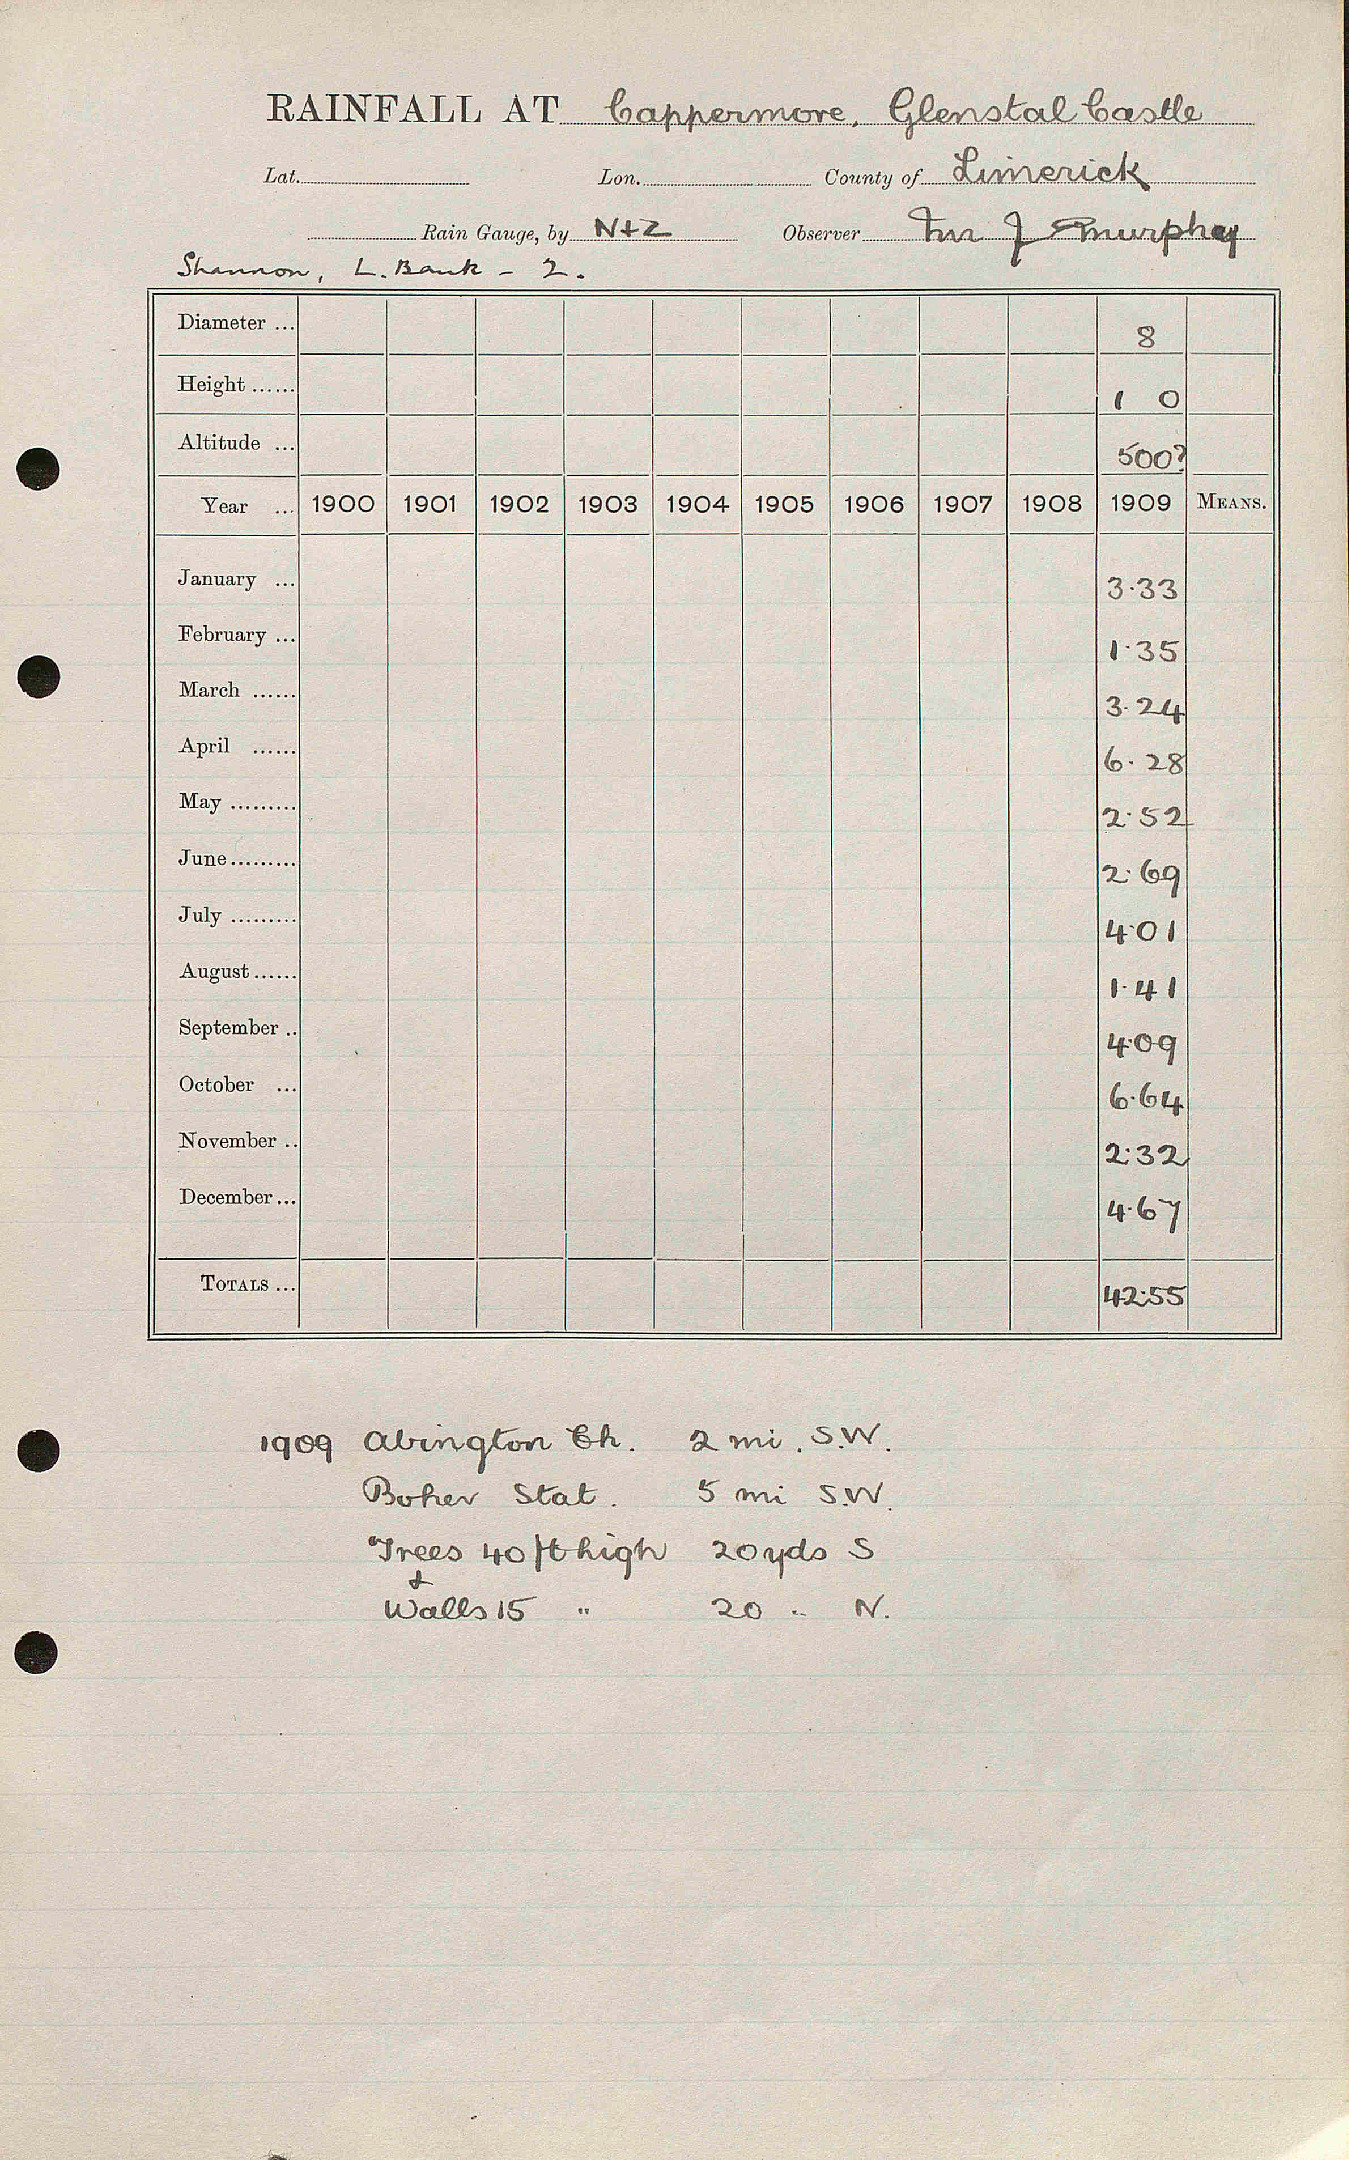 RAINFALL AT Cappermore, Glenstal Castle
Lat. Lon. County of Limerick
Rain Gauge, by N+Z Observer Mr J Murphy
Shannon, L. Bank - 2.
Diameter ... 8
Height ...... 1 0
Altitude ... 500?
Year ... 1900 1901 1902 1903 1904 1905 1906 1907 1908 1909 MEANS.
January ... 3.33
February ... 1.35
March ...... 3.24
April ...... 6.28
May ......... 2.52
June ......... 2.69
July ......... 4.01
August ...... 1.41
September .. 4.09
October ... 6.64
November .. 2.32
December ... 4.67
TOTALS ... 42.55
1909 Abington Ch. 2 mi. S.W.
Boher Stat. 5 mi S.W.
Trees 40 ft high 20 yds S
+
Walls 15 " 20 " N.